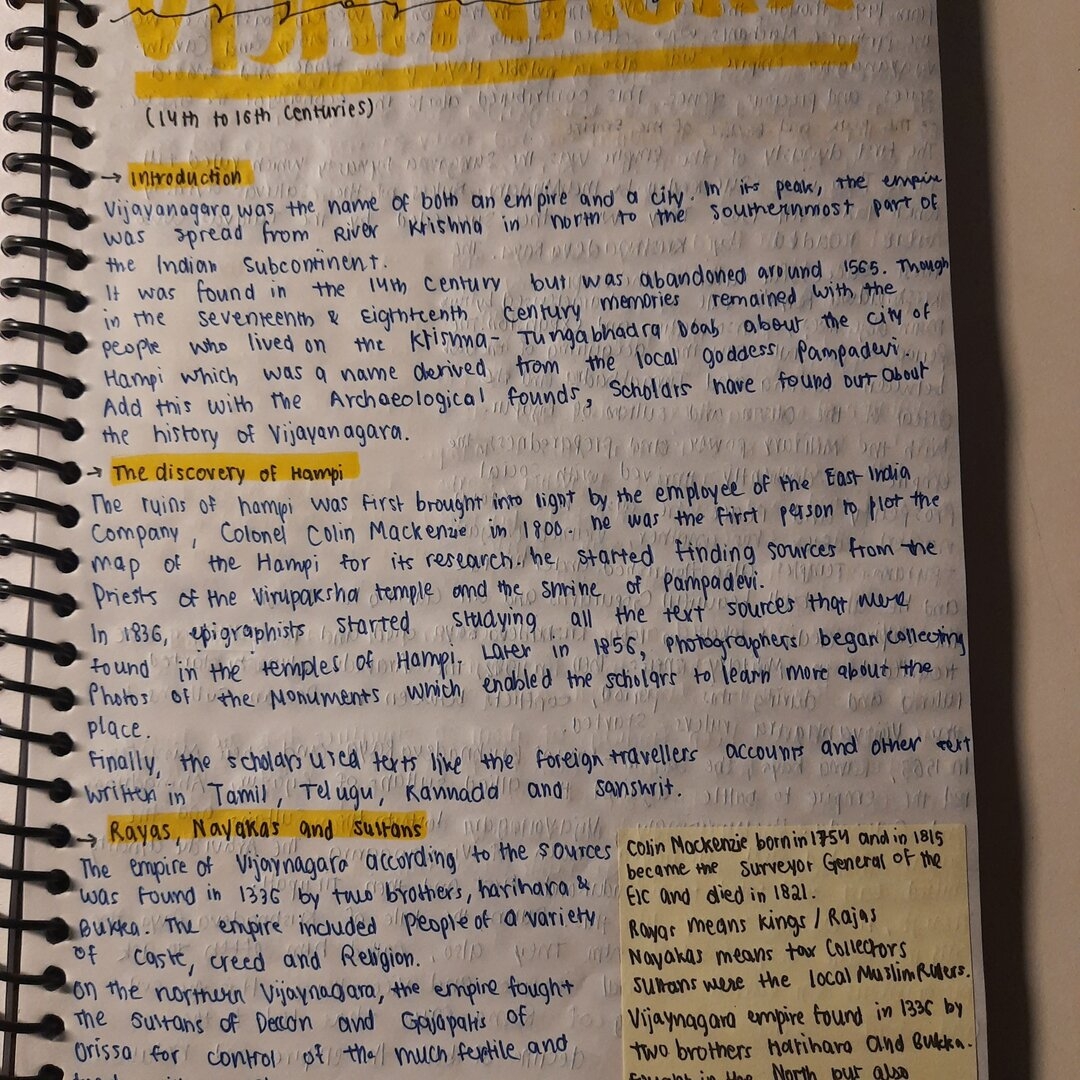 VIJAYANAGARA
(14th to 16th Centuries)
→ Introduction
Vijayanagara was the name of both an empire and a city. In its peak, the empire
was spread from River Krishna in north to the southernmost part of
the Indian Subcontinent.
It was found in the 14th Century but was abandoned around 1565. Though
in the seventeenth & Eighteenth Century memories remained with the
people who lived on the Krishna- Tungabhadra Doab about the city of
Hampi which was a name derived from the local goddess Pampadevi.
Add this with the Archaeological founds, Scholars have found out about
the history of Vijayanagara.
→ The discovery of Hampi
The ruins of hampi was first brought into light by the employee of the East India
Company, Colonel Colin Mackenzie in 1800. he was the first person to plot the
map of the Hampi for its research. he started finding sources from the
Priests of the Virupaksha temple and the shrine of Pampadevi.
In 1836, epigraphists started studying all the text sources that were
found in the temples of Hampi. Later in 1856, Photographers began collecting
Photos of the Monuments which enabled the scholars to learn more about the
place.
Finally, the scholars used texts like the foreign travellers accounts and other text
written in Tamil, Telugu, Kannada and Sanskrit.
→ Rayas, Nayakas and Sultans
The empire of Vijaynagara according to the sources
was found in 1336 by two brothers, harihara &
Bukka. The empire included People of a variety
of Caste, creed and Religion.
On the northern Vijaynagara, the empire fought
the Sultans of Deccan and Gajapatis of
Orissa for control of the much fertile and
Colin Mackenzie born in 1754 and in 1815
became the Surveyor General of the
EIC and died in 1821.
Rayas means kings / Rajas
Nayakas means tax Collectors
Sultans were the local Muslim Rulers.
Vijaynagara empire found in 1336 by
two brothers Harihara and Bukka.
Fought in the North but also